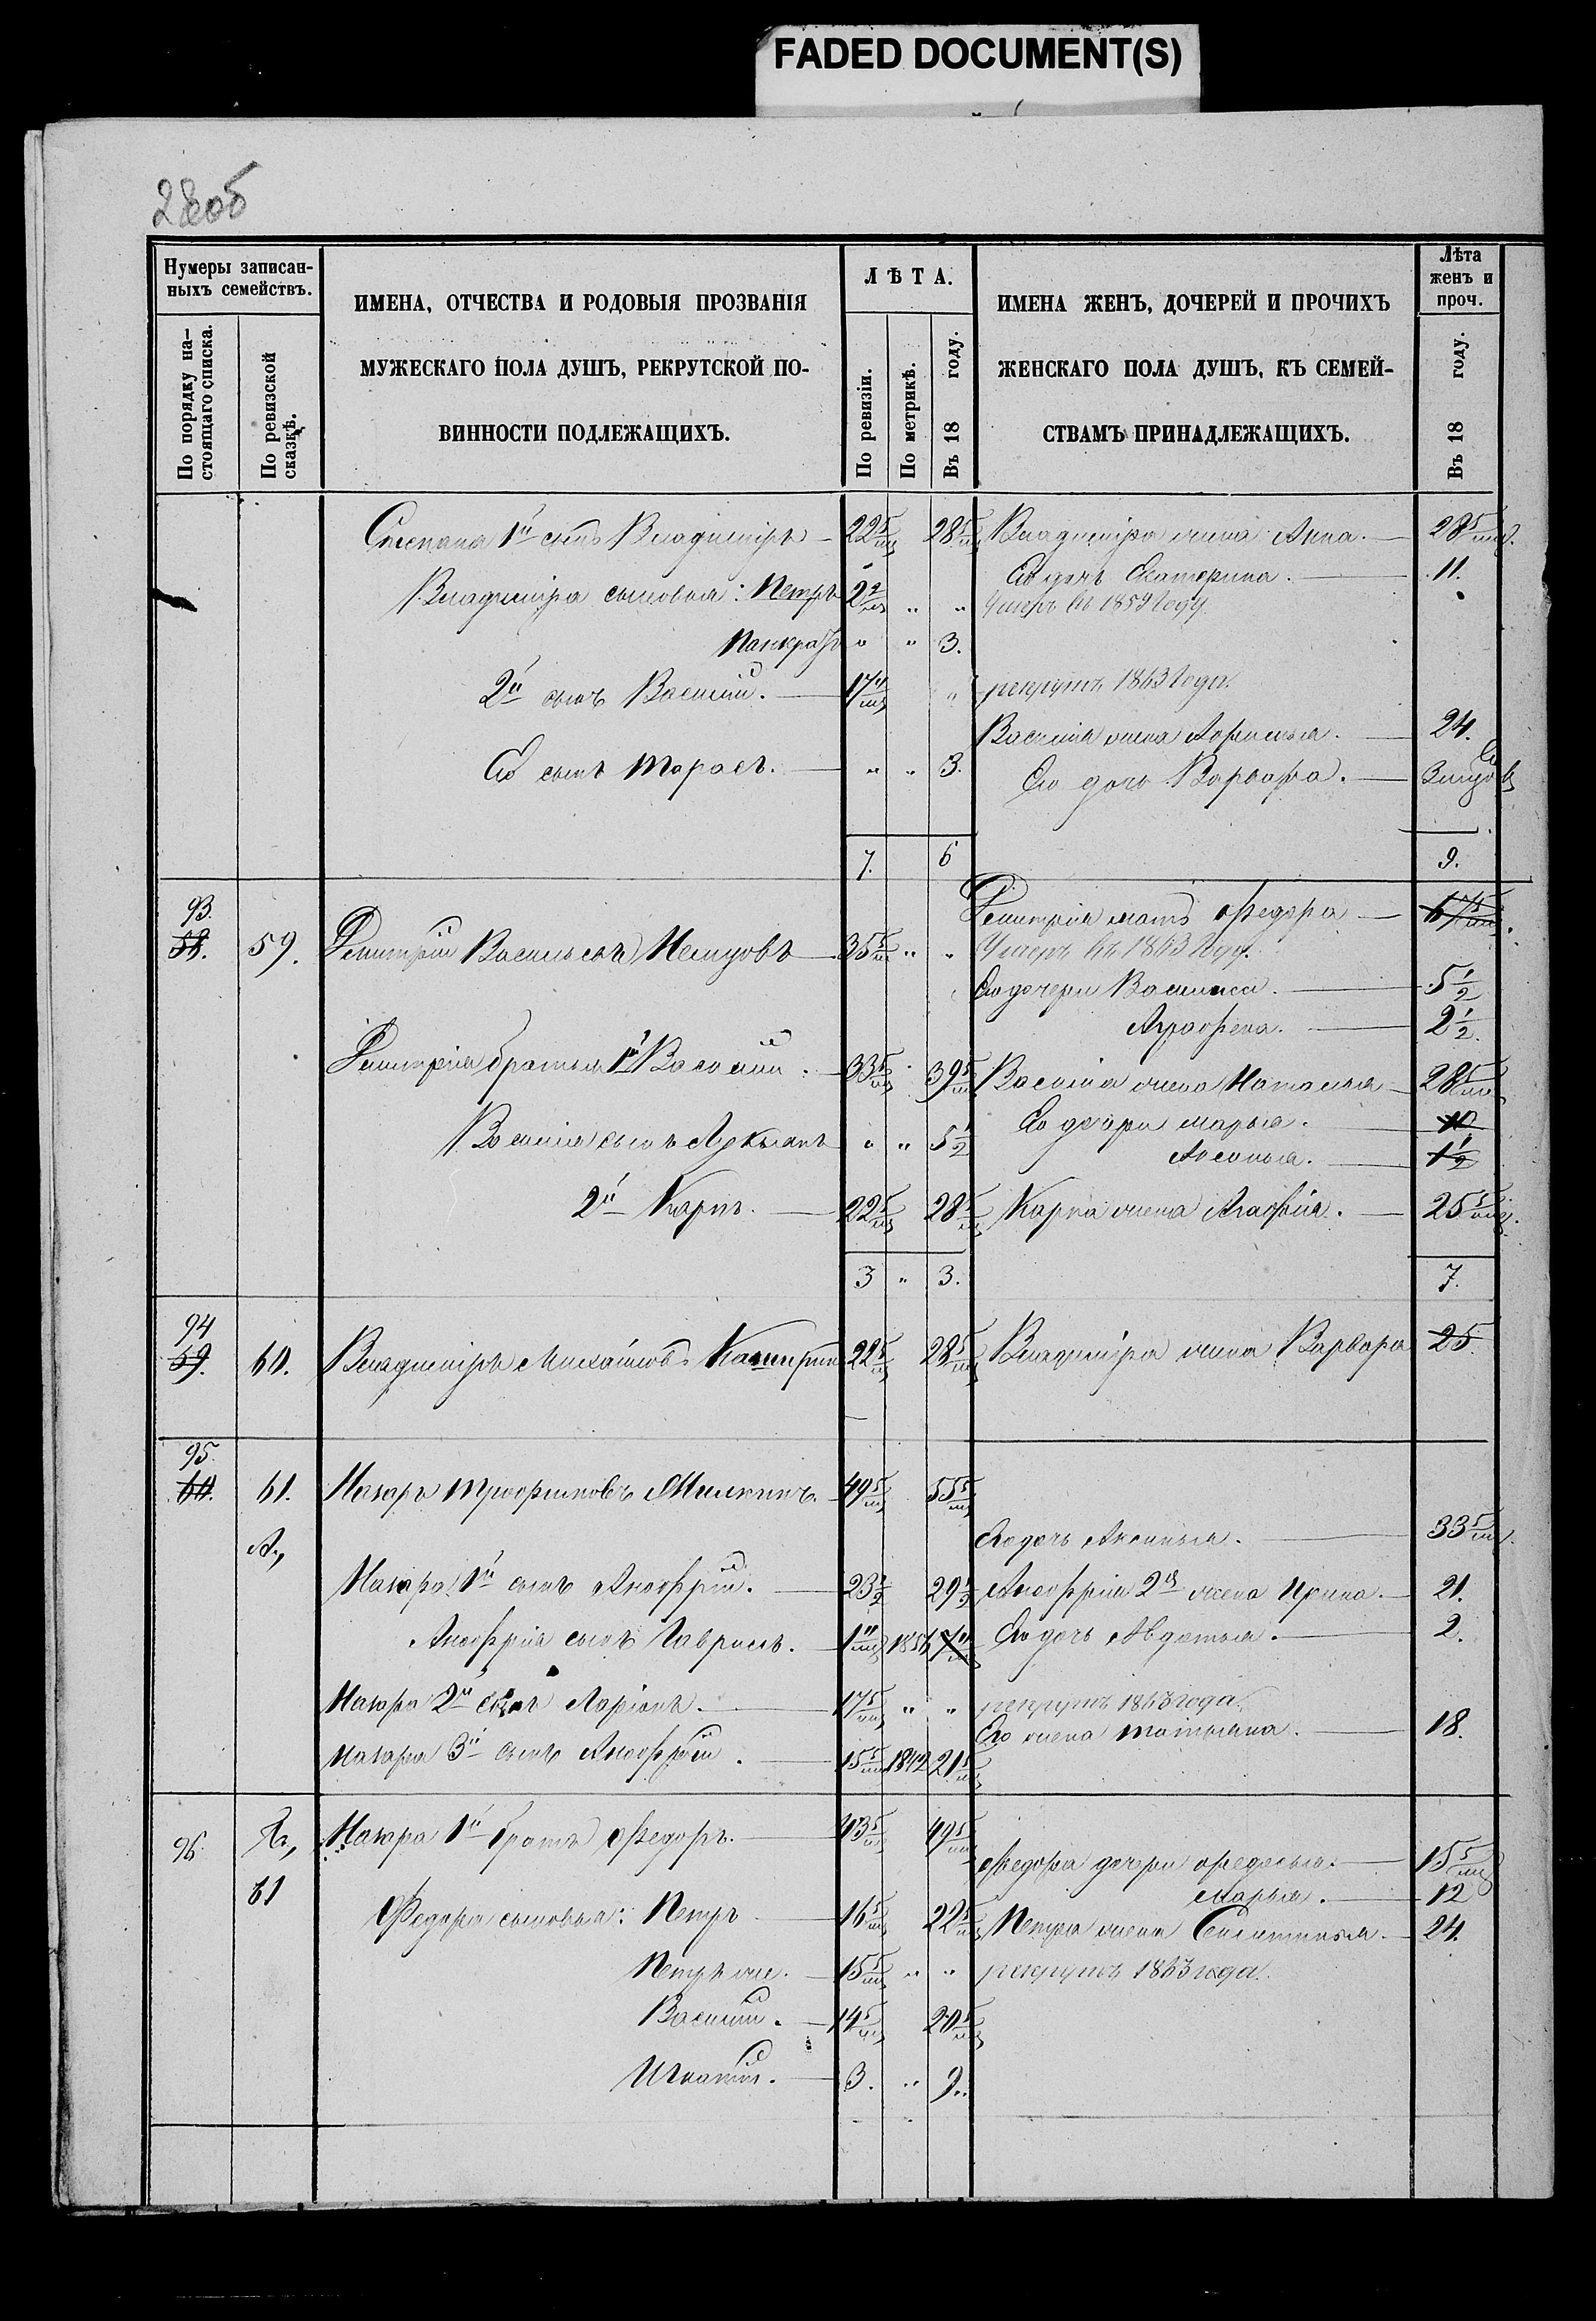 FADED DOCUMENT(S)
28об
Нумеры записан-
ныхъ семействъ.
По порядку на-
стоящаго списка.
По ревизской
сказкѣ.
ИМЕНА, ОТЧЕСТВА И РОДОВЫЯ ПРОЗВАНІЯ
МУЖЕСКАГО ПОЛА ДУШЪ, РЕКРУТСКОЙ ПО-
ВИННОСТИ ПОДЛЕЖАЩИХЪ.
ЛѢТА.
По ревизіи.
По метрикѣ.
Въ 18 году.
ИМЕНА ЖЕНЪ, ДОЧЕРЕЙ И ПРОЧИХЪ
ЖЕНСКАГО ПОЛА ДУШЪ, КЪ СЕМЕЙ-
СТВАМЪ ПРИНАДЛЕЖАЩИХЪ.
Лѣта
женъ и
проч.
Въ 18 году.
Степана 1й сынъ Владиміръ 22 5/м 28 5/м Владиміра жена Анна. 28 5/м
Его дочь Екатерина. 11.
Владиміра сыновья: Петръ 2 " " Умеръ въ 1859 году.
Панкратъ " " 3.
2й сынъ Василій. 17 " рекрутъ 1863 года.
Василія жена 24.
Его сынъ Тарасъ. " " 3. Его дочь Варвара.
7. 6 9.
Дмитрія мать Федора 67 5/м
93. 58. 59. Дмитрій Васильевъ Немцовъ 35 5/м " " Умеръ въ 1863 году.
Его дочери Василиса. 5 1/2
Аграфена. 2 1/2.
Дмитрія братья 1й Василій. 33 5/м 39 5/м Василія жена Наталья 28 5/м
Его дочери Марья. 10
Василія сынъ Лукьянъ " " 5 1/2
Аксинья. 1 1/2
2й Карпъ. 22 5/м 28 5/м Карпа жена Агафія. 25 5/м
3 " 3. 7.
94 59. 60. Владиміръ Михайловъ 22 5/м 28 5/м Владиміра жена Варвара 25
95. 60. 61. Назаръ Трофимовъ 49 5/м 55 5/м
А., Его дочь Аксинья. 33 5/м
Назара 1й сынъ Анофрій. 23 1/2 29 1/2 Анофрія 2я жена Ирина. 21.
Анофрія сынъ Гаврилъ. 1 11/м 1856 7 11/м Его дочь Авдотья. 2.
Назара 2й сынъ Ларіонъ. 17 5/м " " рекрутъ 1863 года.
Его жена Татьяна. 18.
Назара 3й сынъ Анофрій. 15 5/м 1842 21 5/м
96. 61 Назара 1й братъ Федоръ. 43 5/м 49 5/м
Федора дочери Федосья. 15 5/м
Марья. 12
Федора сыновья: Петръ 16 5/м 22 5/м Петра жена 24.
Петръ же. 15 5/м " " рекрутъ 1863 года.
Василій. 14 5/м 20 5/м
Игнатій. 3. " 9.